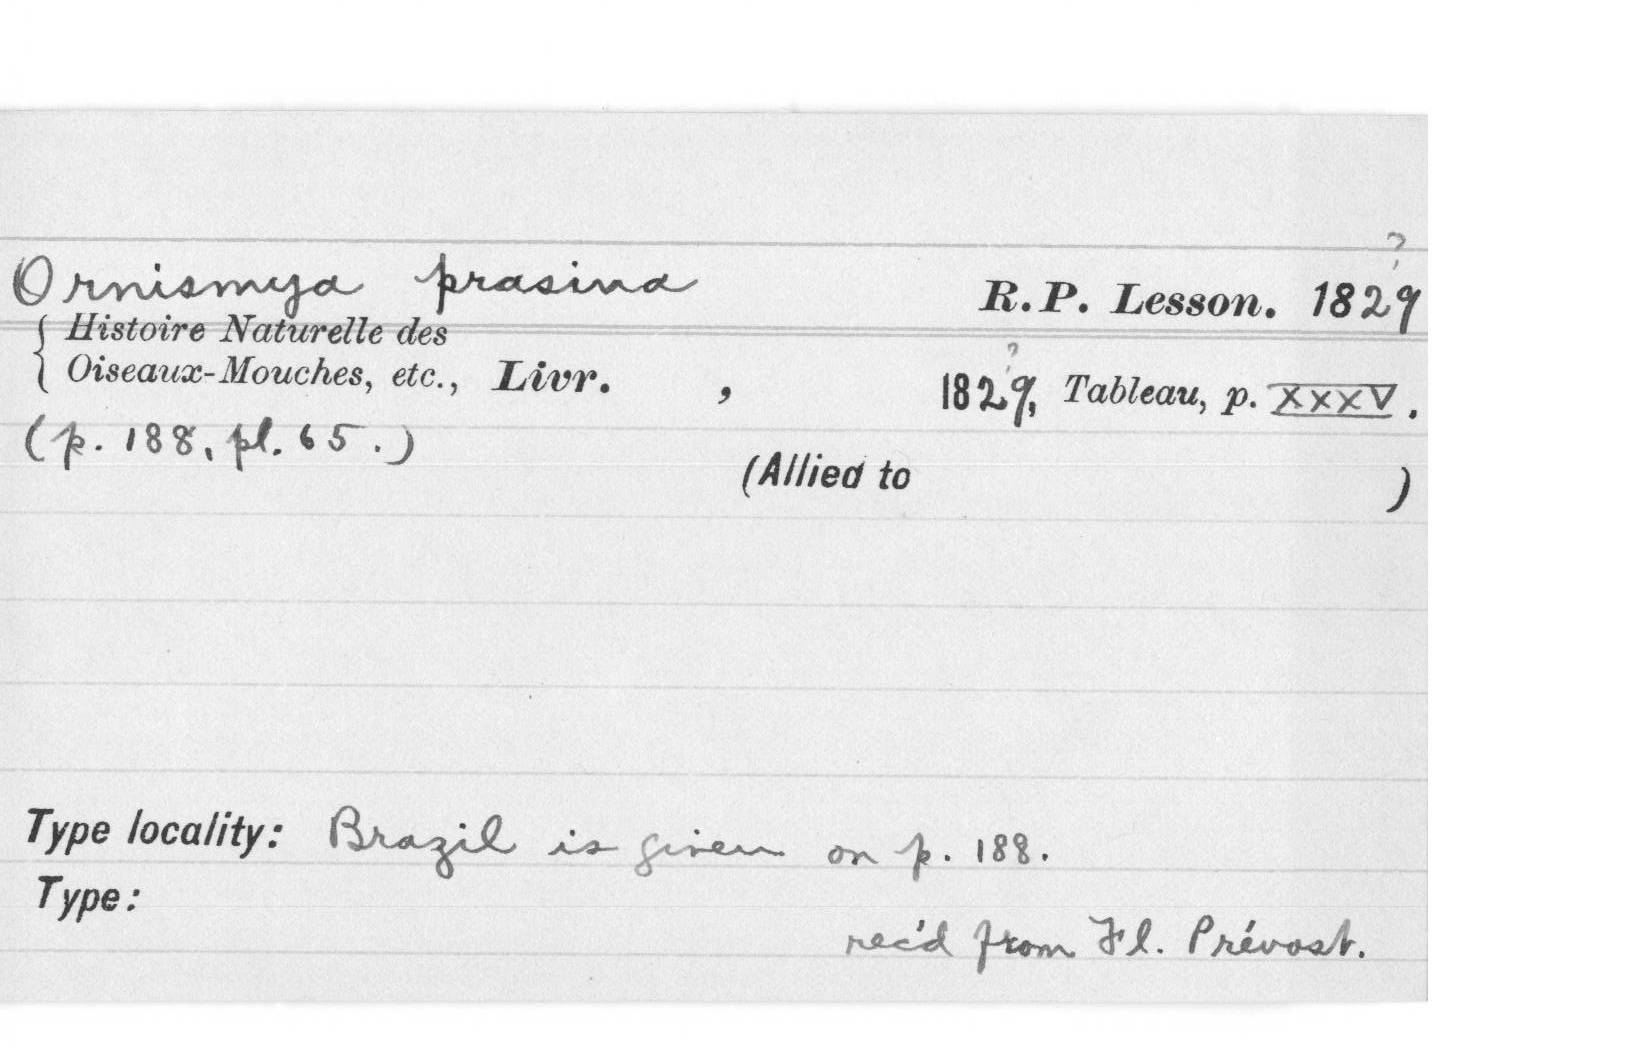 ?
Ornismya prasina R.P. Lesson. 1829
{ Histoire Naturelle des
Oiseaux-Mouches, etc., Livr. , 1829?, Tableau, p. XXXV.
(p. 188, pl. 65.)
(Allied to )
Type locality: Brazil is given on p. 188.
Type:
rec'd from Fl. Prévost.